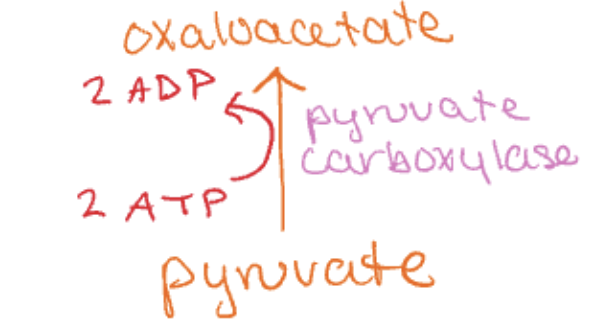 oxaloacetate
2 ADP
pyruvate
carboxylase
2 ATP
pyruvate